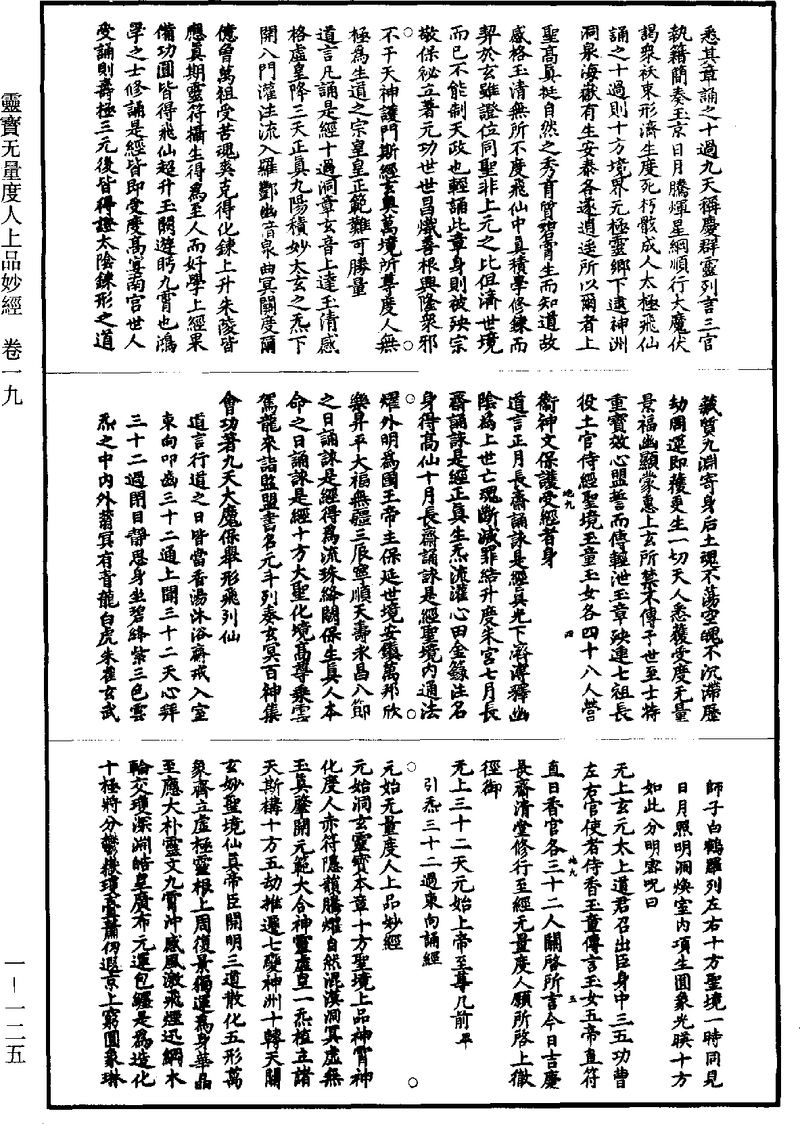 悉其章誦之十過九天稱慶群靈列言三官
執籍簡奏玉京日月騰煇星綱順行大魔伏
謁衆祅束形濟生度死朽骸成人太極飛仙
誦之十過則十方境界无極靈鄉下逮神洲
洞泉海嶽有生安泰各遂逍遥所以爾者上
聖高真挺自然之秀育質碧霄生而知道故
感格玉清無所不度飛仙中真積學修鍊而
契於玄雖證位同聖非上元之比但濟世境
而已不能制天政也輕誦此章身則被殃宗
敬保祕立著元功世世昌熾善根興隆衆邪
不干天神護門斯經玄奧萬境所尊度人無
極為生道之宗皇皇正範難可勝量
道言凡誦是經十過洞章玄音上達玉清感
格虛皇降三天正真九陽積妙太玄之炁下
開八門灌注流入羅酆幽府泉曲冥關度爾
億曾萬祖受苦魂爽克得化鍊上升朱陵皆
應真期靈符攝生得為至人而好學上經果
備功圓皆得飛仙超升玉闕遊眄九霄也鴻
學之士修誦是經皆即受度高真南宮世人
受誦則壽極三元後皆得證太陰鍊形之道
蛻質九淵寄身后土魂不蕩空魄不沉滯歷
劫周運即穫更生一切天人悉蒙受度无量
景福幽顯蒙惠上玄所禁不傳于世至士特
重寶效心盟誓而傳輕泄玉章殃連七祖長
役土官侍經聖境玉童玉女各四十八人營
衛神文保護受經者身
道言正月長齋誦詠是經真光下濟溥釋幽
陰為上世亡魂斷滅罪結升度朱宮七月長
齋誦詠是經正真生炁流灌心田金籙注名
身得高仙十月長齋誦詠是經聖境内通法
耀外明為國王帝主保延世境安鎮萬邦欣
樂昇平大福無疆三辰寧順天壽永昌八節
之日誦詠是經得為流珠絳闕保生真人本
命之日誦詠是經十方大聖化境高尊乘雲
駕龍來詣監盟書名元斗列奏玄冥百神集
會功著九天大魔保舉形飛列仙
道言行道之日皆當香湯沐浴齋戒入室
東向叩齒三十二通上聞三十二天心拜
三十二過閉目靜思身坐碧絳紫三色雲
炁之中内外蓊冥有青龍白虎朱雀玄武
師子白鶴羅列左右十方聖境一時同見
日月照明洞煥室内項生圓象光暎十方
如此分明密呪曰
无上玄元太上道君召出臣身中三五功曹
左右官使者侍香玉童傳言玉女五帝直符
直日香官各三十二人關啓所言今日吉慶
長齋清堂修行至經无量度人願所啓上徹
徑御
无上三十二天元始上帝至尊几前平
引炁三十二過東向誦經
元始无量度人上品妙經
元始洞玄靈寶本章十方聖境上品神霄神
化度人赤符隱韻騰耀自然混漠洞冥虛無
玉真肇開元範大合神靈虛皇一炁植立諸
天斯構十方五劫推遷七變神洲十轉天關
玄妙聖境仙真帝臣開明三道散化五形萬
象齊立虛極靈根上周復景獨運為身華晶
至應大朴靈文九霄沖感風激飛煙迅網木
輪交瓊深淵皓皇廣布元運包纏是為造化
十極將分鬱機瓊霄蕭仞遐京上窮圓象琳
地九
四
地九
五
靈寶无量度人上品妙經 卷一九
一—一二五